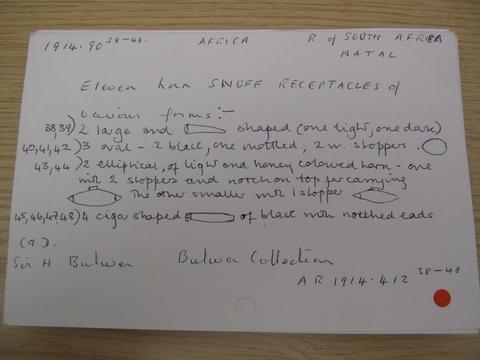 1914.90 38-48. AFRICA R. of SOUTH AFRICA
NATAL.
Eleven horn SNUFF RECEPTACLES of
various forms:-
38,39) 2 large and shaped (one light, one dark)
40,41,42) 3 oval - 2 black, one mottled, 2 w. stoppers.
43,44) 2 elliptical, of light and honey coloured horn - one
with 2 stoppers and notch on top for carrying
The other smaller with 1 stopper
45,46,47,48) 4 cigar shaped of black with notched ends
Sir H. Bulwer Bulwer Collection
AR 1914.412. 38-48